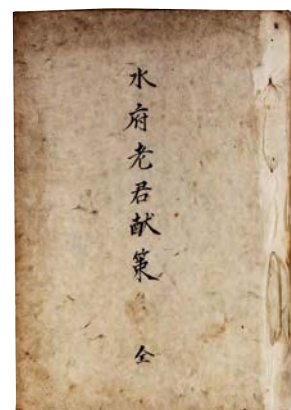 水府老君献策 全